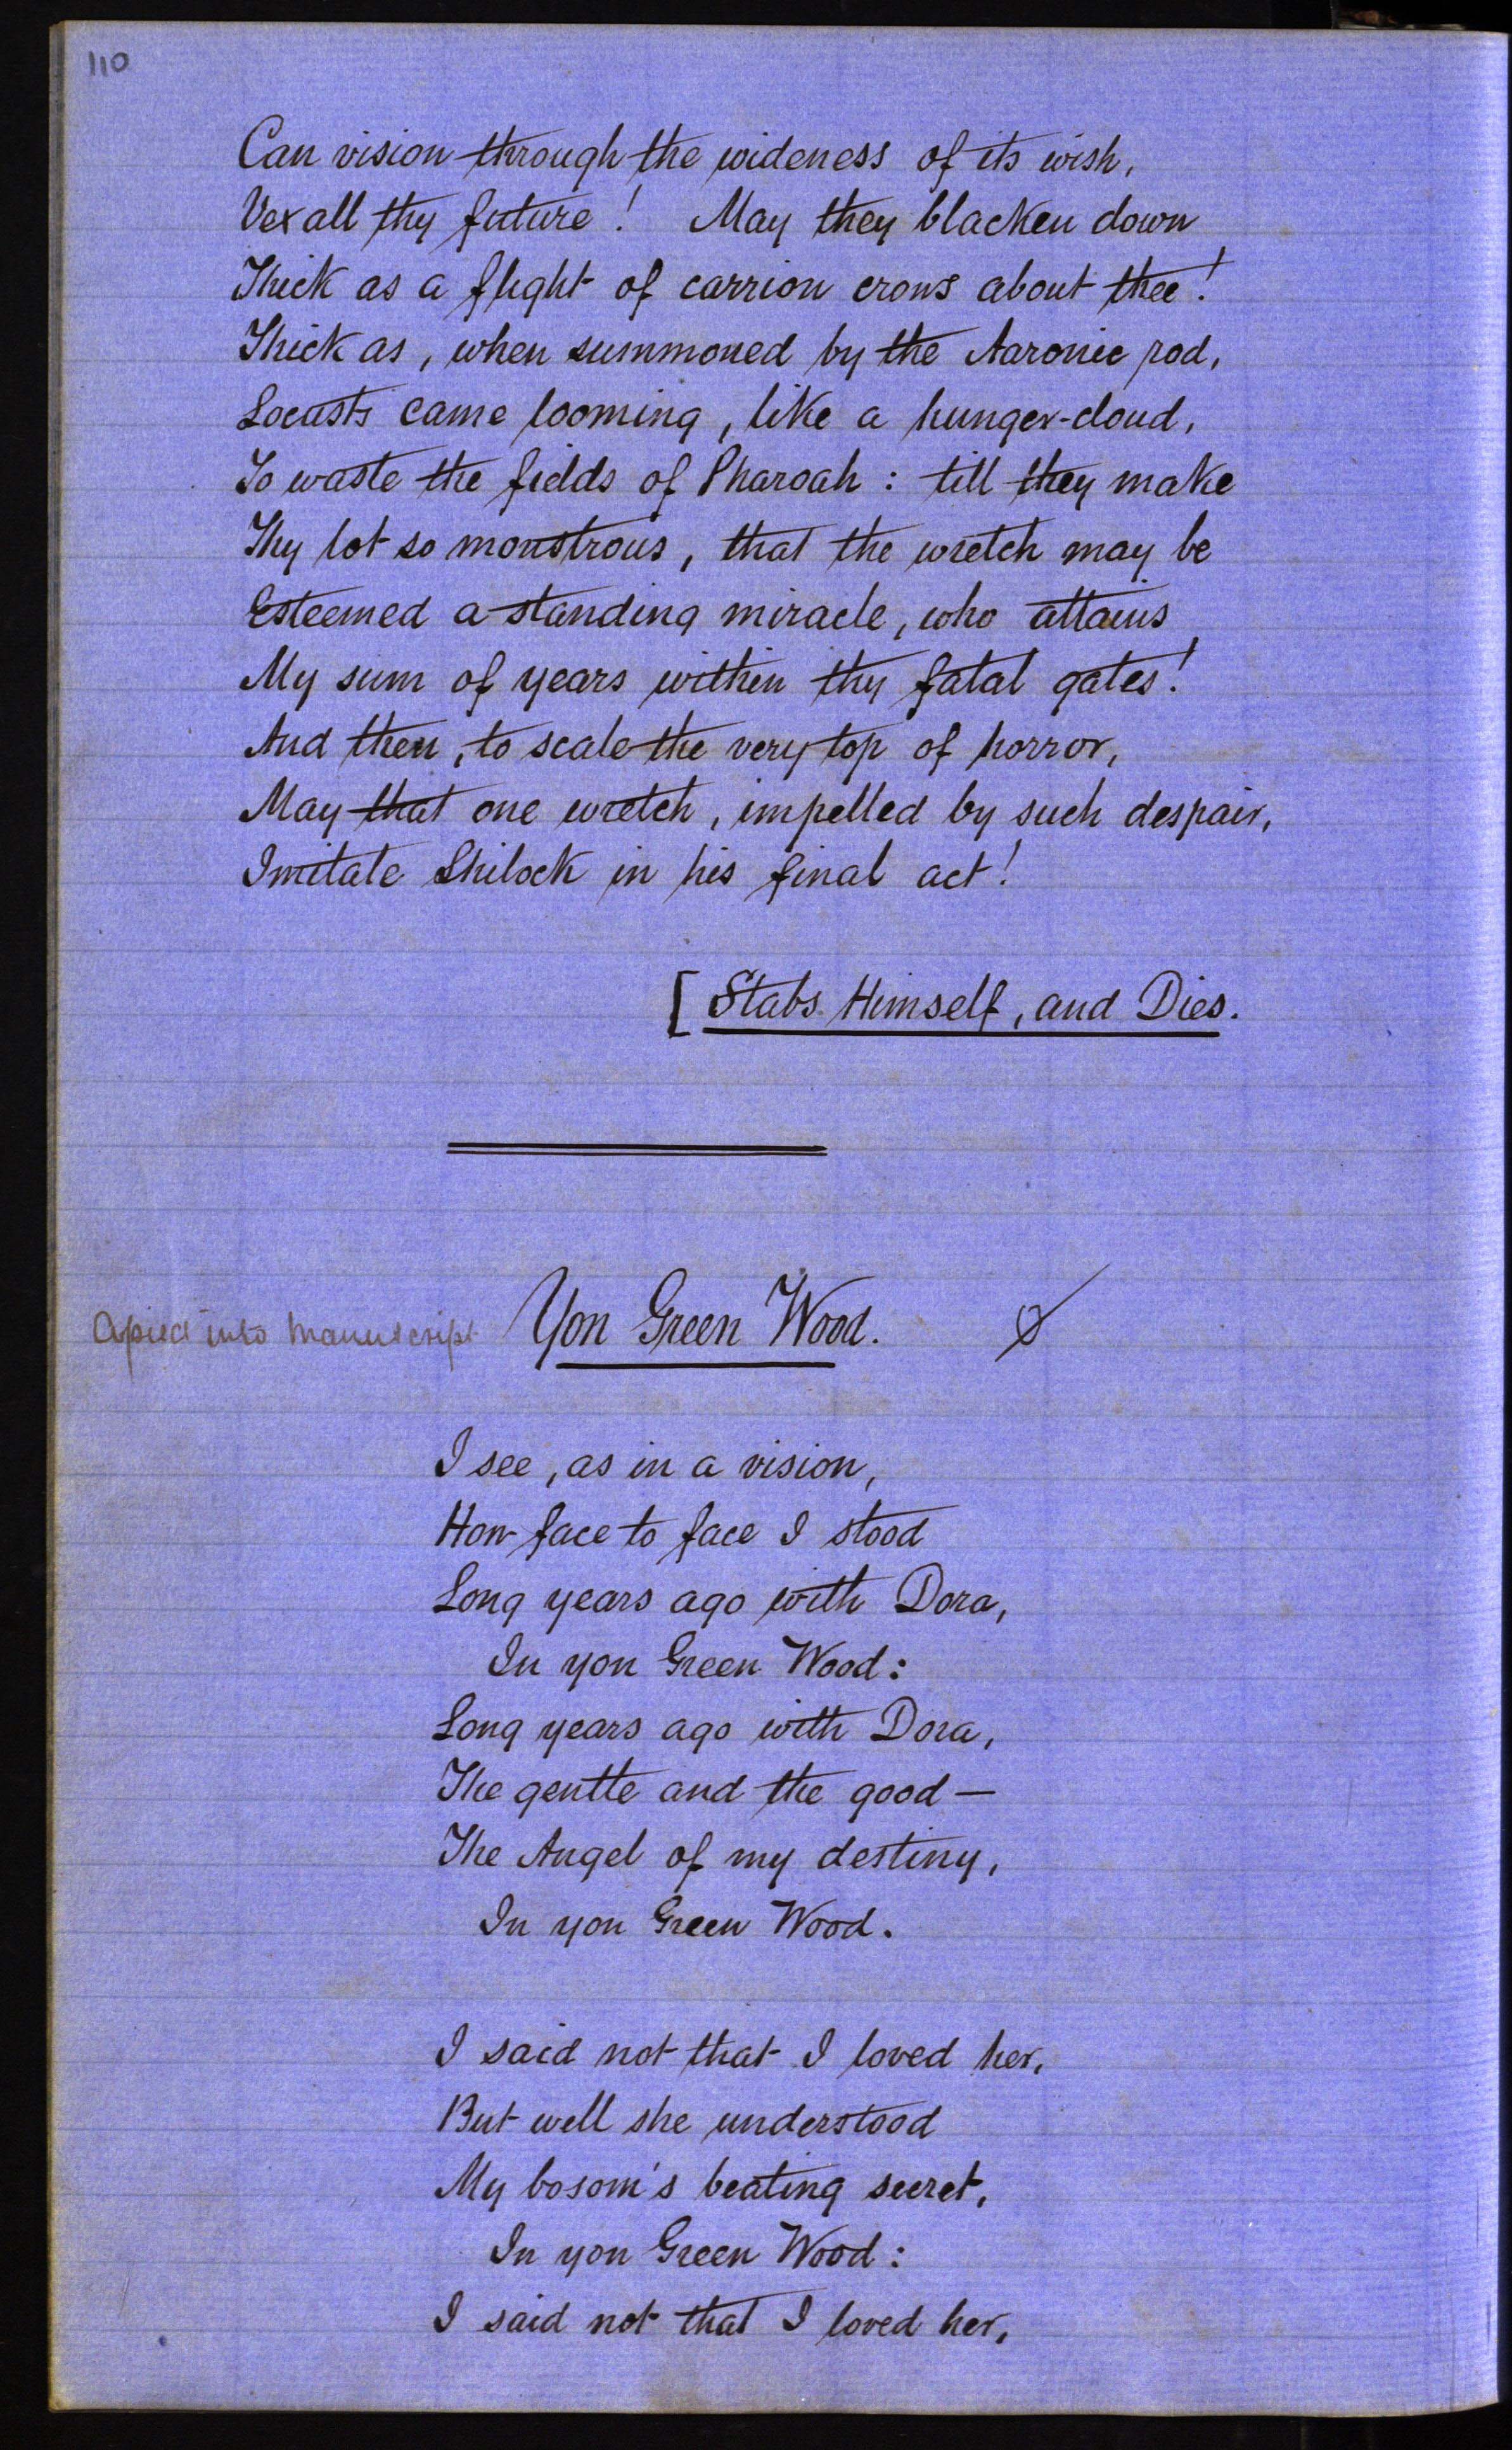 110
Can vision through the wideness of its wish,
Vex all thy future! May they blacken down
Thick as a flight of carrion crows about thee!
Thick as, when summoned by the Aaronic rod,
Locusts came looming, like a hunger-cloud,
To waste the fields of Pharoah: till they make
Thy lot so monstrous, that the wretch may be
Esteemed a standing miracle, who attains
My sum of years within thy fatal gates!
And then, to scale the very top of horror,
May that one wretch, impelled by such despair,
Imitate Shilock in his final act!
[Stabs Himself, and Dies.
Copied into Manuscript Yon Green Wood.
I see, as in a vision,
How face to face I stood
Long years ago with Dora,
In yon Green Wood:
Long years ago with Dora,
The gentle and the good—
The Angel of my destiny,
In yon Green Wood.
I said not that I loved her,
But well she understood
My bosom's beating secret,
In yon Green Wood:
I said not that I loved her,